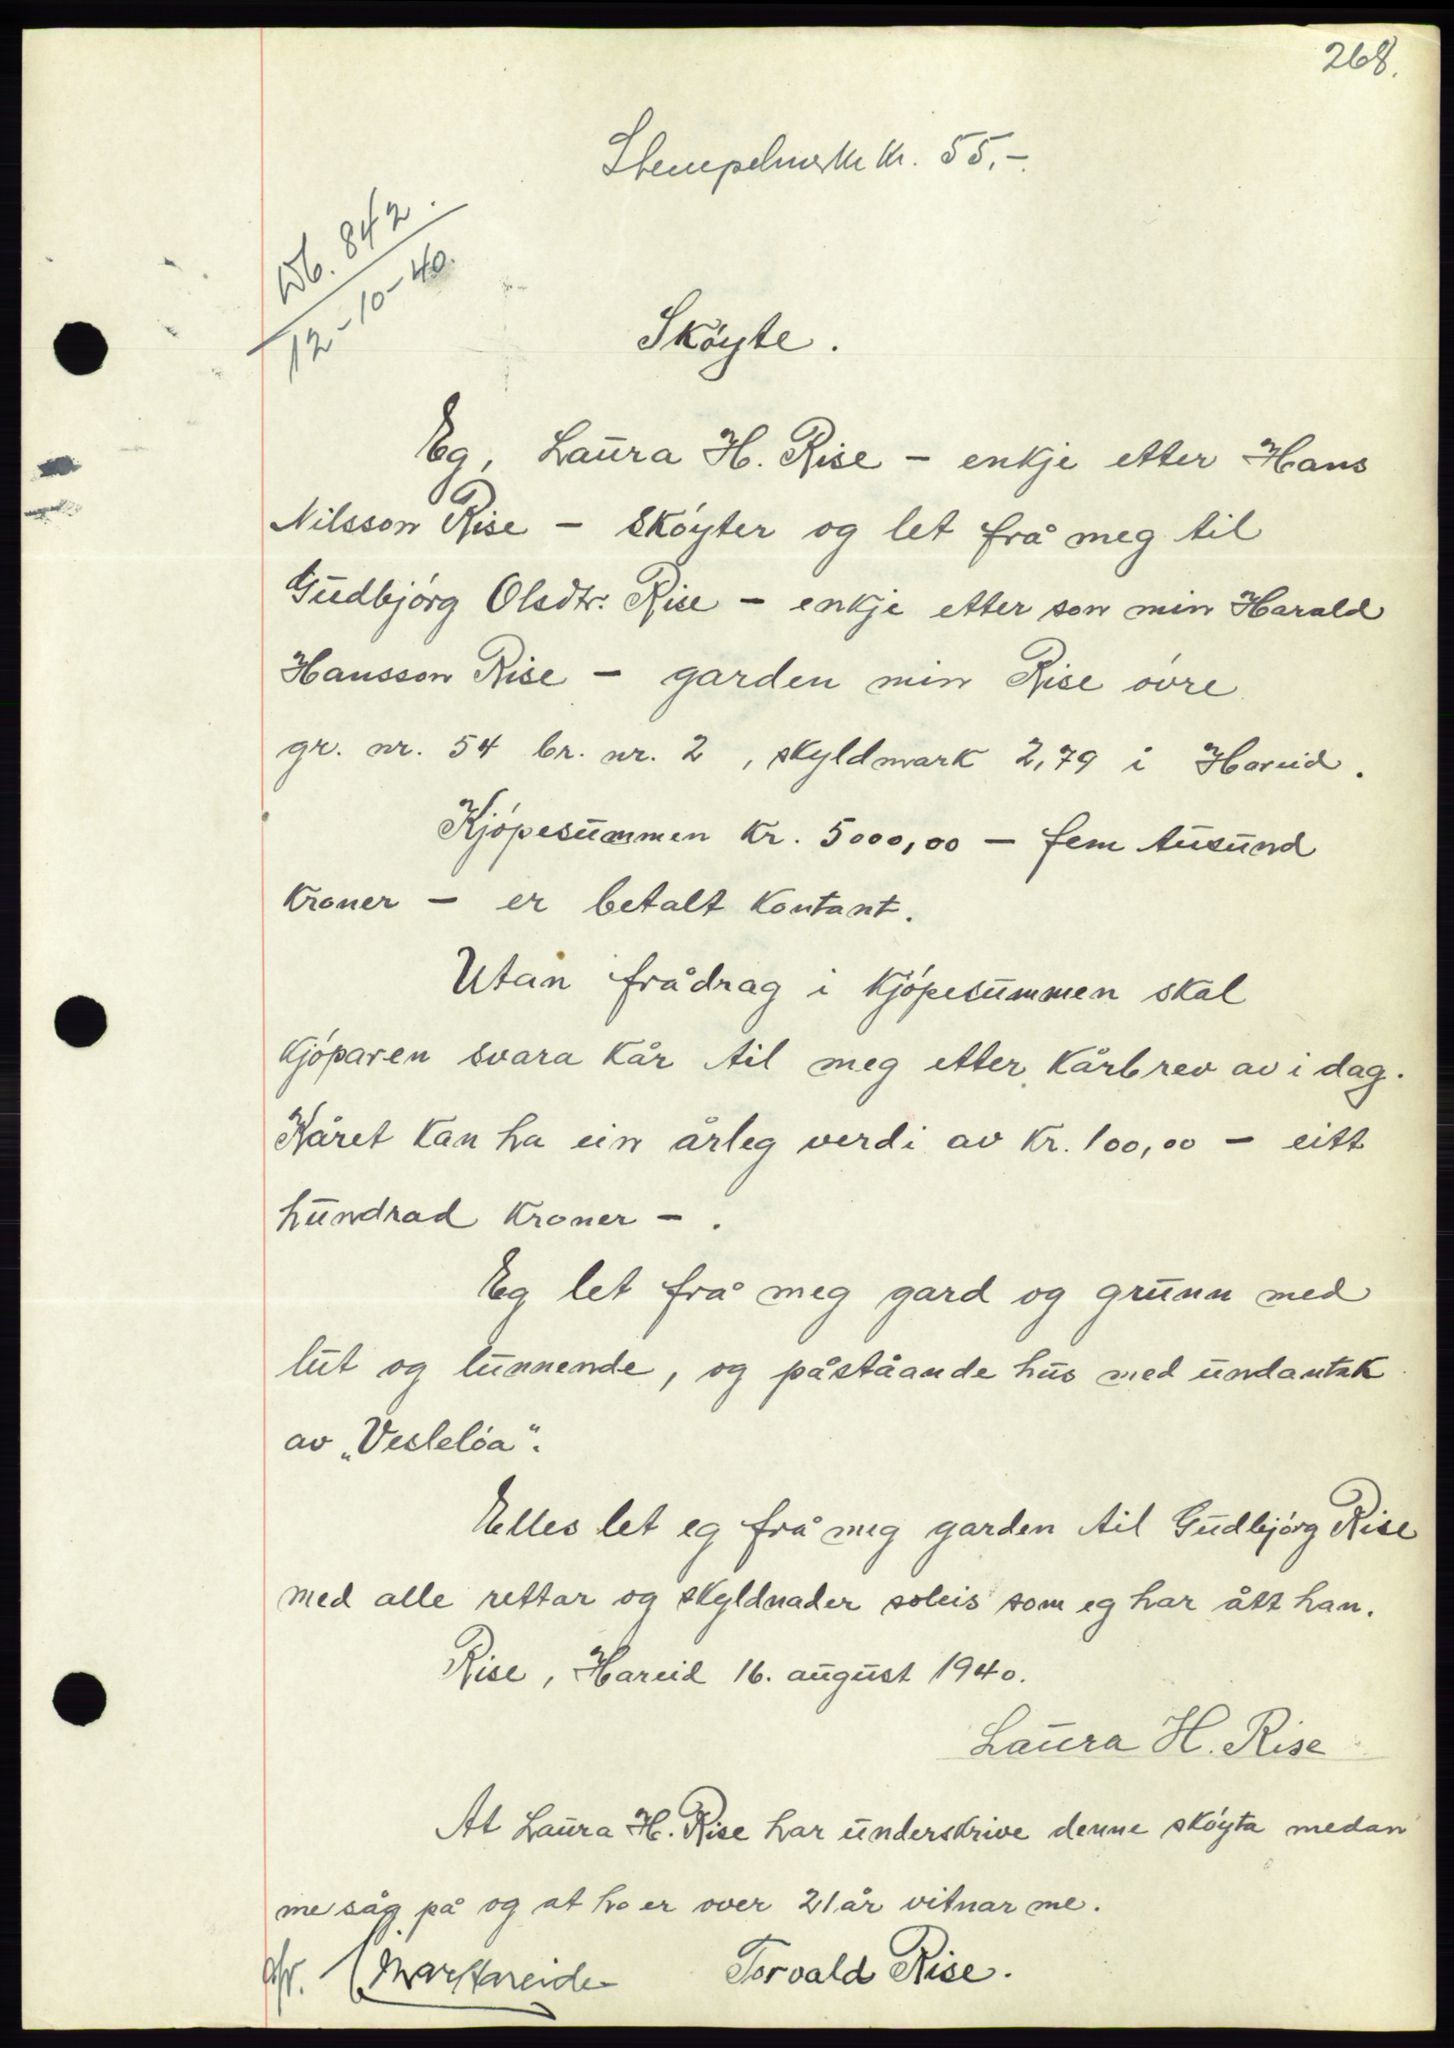 268.
Stempelmerke kr. 55,-.
Db. 842.
12-10-40.
Skóyte.
Eg, Laura H. Rise - enkje etter Hans
Nilsson Rise - skóyter og let frå meg til
Gudbjórg Olsdtr. Rise - enkje etter son min Harald
Hansson Rise - garden min Rise óvre
gr. nr. 54 br. nr. 2, skyldmark 2,79 i Hareid.
Kjópesummen kr. 5000,00 - fem tusund
kroner - er betalt kontant.
Utan frådrag i kjópesummen skal
kjóparen svara kår til meg etter kårbrev av i dag.
Kåret kan ha ein årleg verdi av kr. 100,00 - eitt
hundrad kroner - .
Eg let frå meg gard og grunn med
lut og lunnende, og påståande hus med undantak
av „Veslelóa“.
Elles let eg frå meg garden til Gudbjórg Rise
med alle rettar og skyldnader soleis som eg har ått han.
Rise, Hareid 16. august 1940.
Laura H. Rise
At Laura H. Rise har underskrive denne skóyta medan
me såg på og at ho er over 21 år vitnar me.
Ivar Hareide Torvald Rise.